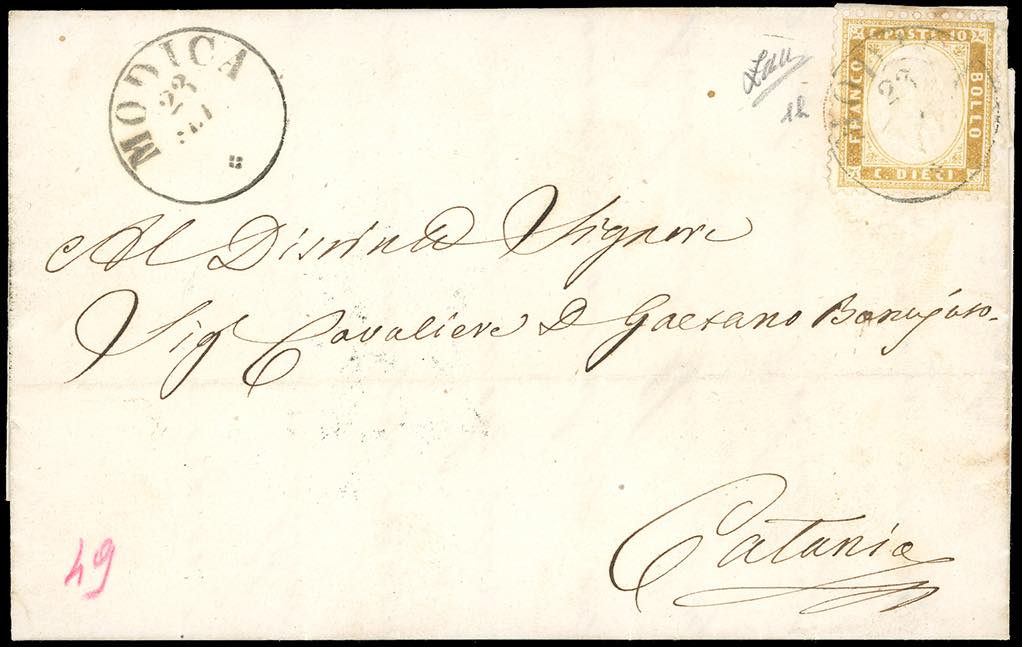 MODICA
23
C. POSTE 10
FRANCO
BOLLO
C. DIECI
23
Al Distinto Signore
Sig.r Cavaliere D Gaetano
Catania
49